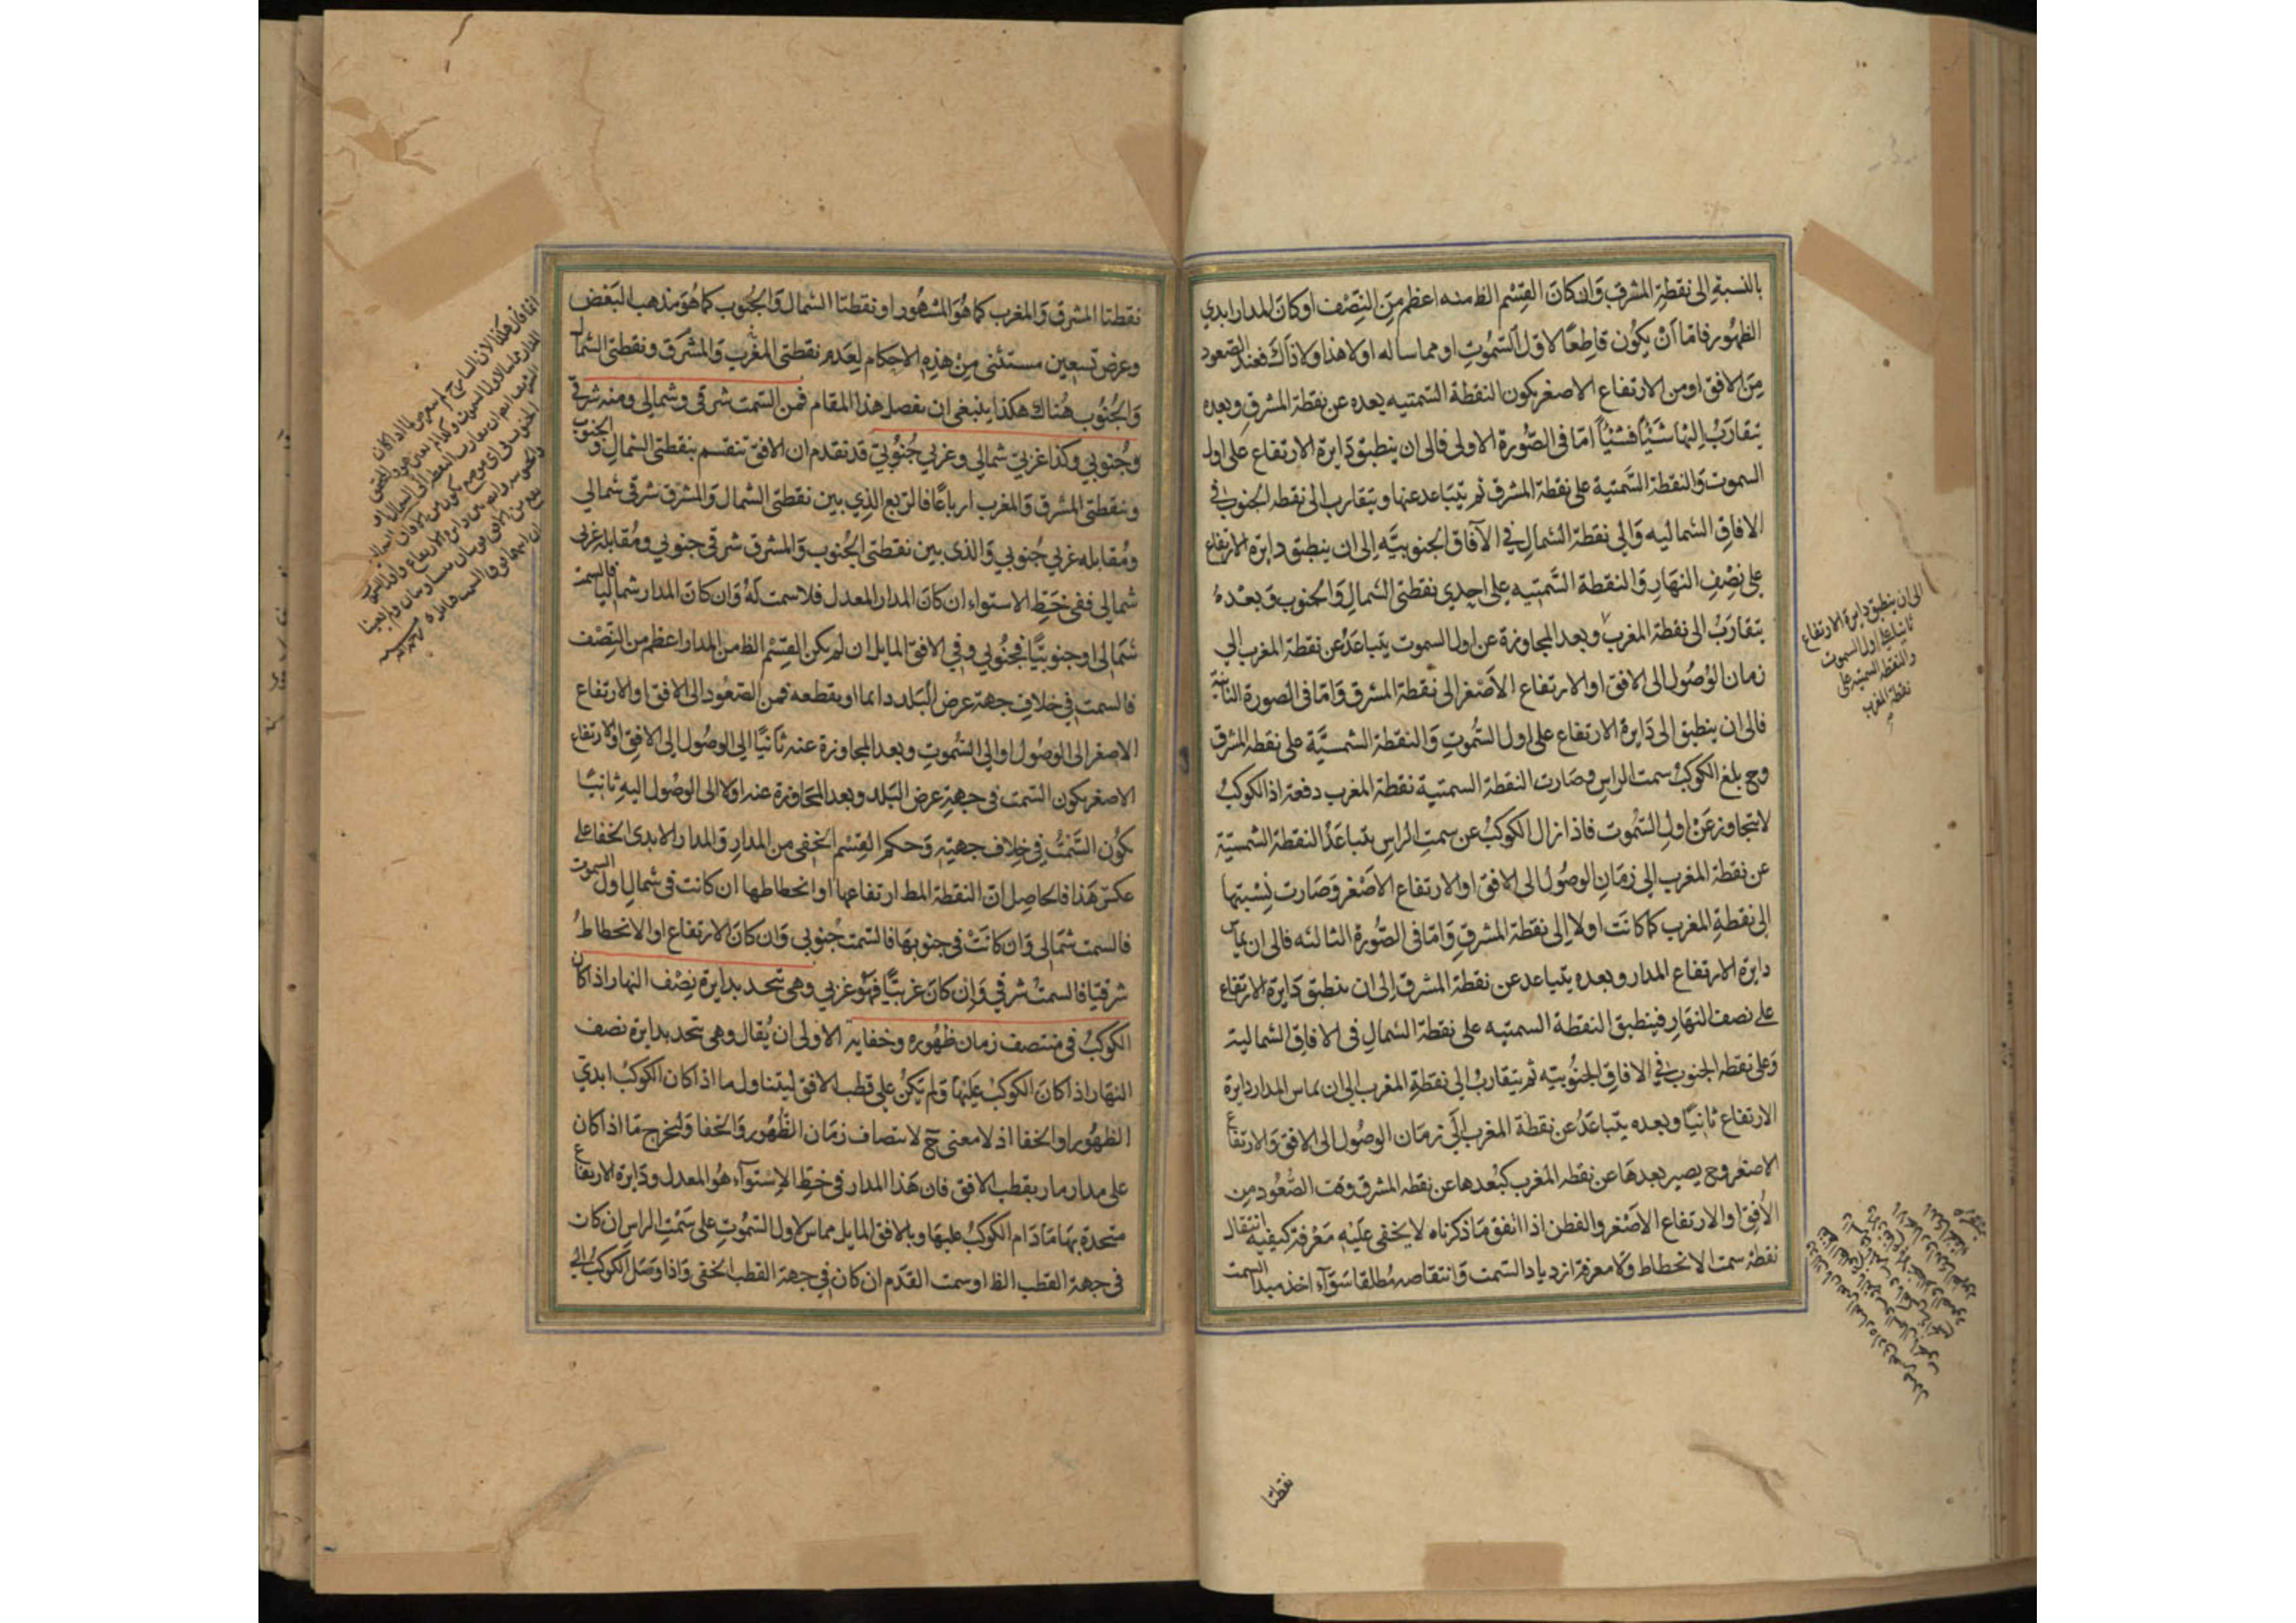 بالنسبة الى نقطة المشرق وان كان القسم الظ منه اعظم من النصف او كان المدار ابدي
الظهور فاما ان يكون قاطعا لاول السموت او مماسا له او لا هذا ولا ذاك فعند الصعود
من الافق او من الارتفاع الاصغر يكون النقطة السمتيه بعده عن نقطة المشرق وبعده
يتقارب اليها شيئا فشيئا اما في الصورة الاولى فالى ان ينطبق دايرة الارتفاع على اول
السموت والنقطة السمتية على نقطة المشرق ثم يتباعد عنها ويتقارب الى نقطه الجنوب في
الافاق الشماليه والى نقطة الشمال في الآفاق الجنوبيه الى ان ينطبق دايرة الارتفاع
على نصف النهار والنقطة السمتيه على احدي نقطتى الشمال والجنوب وبعده
يتقارب الى نقطة المغرب وبعد المجاوزة عن اول السموت يتباعد عن نقطة المغرب الي
زمان الوصول الى الافق او الارتفاع الاصغر الى نقطة المشرق واما فى الصورة الثانية
فالى ان ينطبق الى دايرة الارتفاع على اول السموت والنقطة الشمسية على نقطه المشرق
وح بلغ الكوكب سمت الراس وصارت النقطة السمتية نقطة المغرب دفعة اذ الكوكب
لا يتجاوز عن اول السموت فاذا زال الكوكب عن سمت الراس يتباعد النقطة الشمسية
عن نقطة المغرب الي زمان الوصول الى الافق او الارتفاع الاصغر وصارت نسبتها
الى نقطة المغرب كما كانت اولا الى نقطة المشرق واما فى الصورة الثالثه فالى ان يماس
دايرة الارتفاع المدار وبعده يتباعد عن نقطة المشرق الى ان ينطبق دايرة الارتفاع
على نصف النهار فينطبق النقطة السمتيه على نقطة الشمال فى الافاق الشمالية
وعلى نقطه الجنوب في الافاق الجنوبيه ثم يتقارب الي نقطة المغرب الي ان يماس المدار دايرة
الارتفاع ثانيا وبعده يتباعد عن نقطة المغرب الي زمان الوصول الى الافق والارتفاع
الاصغر وح يصير بعدها عن نقطه المغرب كبعدها عن نقطه المشرق وقت الصعود من
الافق او الارتفاع الاصغر والفطن اذا اتقن ما ذكرناه لا يخفى عليه معرفة كيفية انتقال
نقطة سمت الانحطاط ولا معرفة ازدياد السمت وانتقاصه مطلقا سوآء اخذ مبدا السمت
الى ان ينطبق دايرة الارتفاع
ثانيا على اول السموت
والنقطة السمتية على
نقطة المغرب
نقطتا
نقطتا المشرق والمغرب كما هو المشهور او نقطتا الشمال والجنوب كما هو مذهب البعض
وعرض تسعين مستثنى من هذه الاحكام لعدم نقطتى المغرب والمشرق ونقطتى الشمال
والجنوب هناك هكذا ينبغي ان يفصل هذا المقام فمن السمت شرقى وشمالي ومنه شرقى
وجنوبي وكذا غربي شمالي وغربي جنوبي قد تقدم ان الافق تنقسم بنقطتى الشمال والجنوب
ونقطتى المشرق والمغرب ارباعا فالربع الذي بين نقطتى الشمال والمشرق شرقى شمالي
ومقابله غربي جنوبي والذى بين نقطتى الجنوب والمشرق شرقى جنوبي ومقابله غربى
شمالي ففى خط الاستواء ان كان المدار المعدل فلا سمت له وان كان المدار شماليا فالسمت
شمالى او جنوبيا فجنوبي وفي الافق المايل ان لم يكن القسم الظ من المدار اعظم من النصف
فالسمت في خلاف جهة عرض البلد دايما او يقطعه فمن الصعود الى الافق او الارتفاع
الاصغر الى الوصول اوالي السموت وبعد المجاوزة عنه ثانيا الي الوصول الى الافق او الارتفاع
الاصغر يكون السمت فى جهة عرض البلد وبعد المجاوزة عنه اولا الى الوصول اليه ثانيا
يكون السمت في خلاف جهته وحكم القسم الخفى من المدار والمدار الابدى الخفا على
عكس هذا فالحاصل ان النقطة المط ارتفاعها او انحطاطها ان كانت فى شمال اول السموت
فالسمت شمالى وان كانت في جنوبها فالسمت جنوبي وان كان الارتفاع او الانحطاط
شرقيا فالسمت شرقي وان كان غربيا فهو غربي وهى تتحد بدايرة نصف النهار اذا كان
الكوكب فى منتصف زمان ظهوره وخفايه الاولى ان يقال وهى تتحد بدايرة نصف
النهار اذا كان الكوكب عليها ولم يكن على قطب الافق ليتناول ما اذا كان الكوكب ابدي
الظهور او الخفا اذ لا معنى ح لانتصاف زمان الظهور والخفا وليخرج ما اذا كان
على مدار مار بقطب الافق فان هذا المدار فى خط الاستوآء هو المعدل ودايرة الارتفاع
متحدة بها ما دام الكوكب عليها وبالافق المايل مماس لاول السموت على سمت الراس ان كان
فى جهة القطب الظ او سمت القدم ان كان في جهة القطب الخفى واذا وصل الكوكب الى